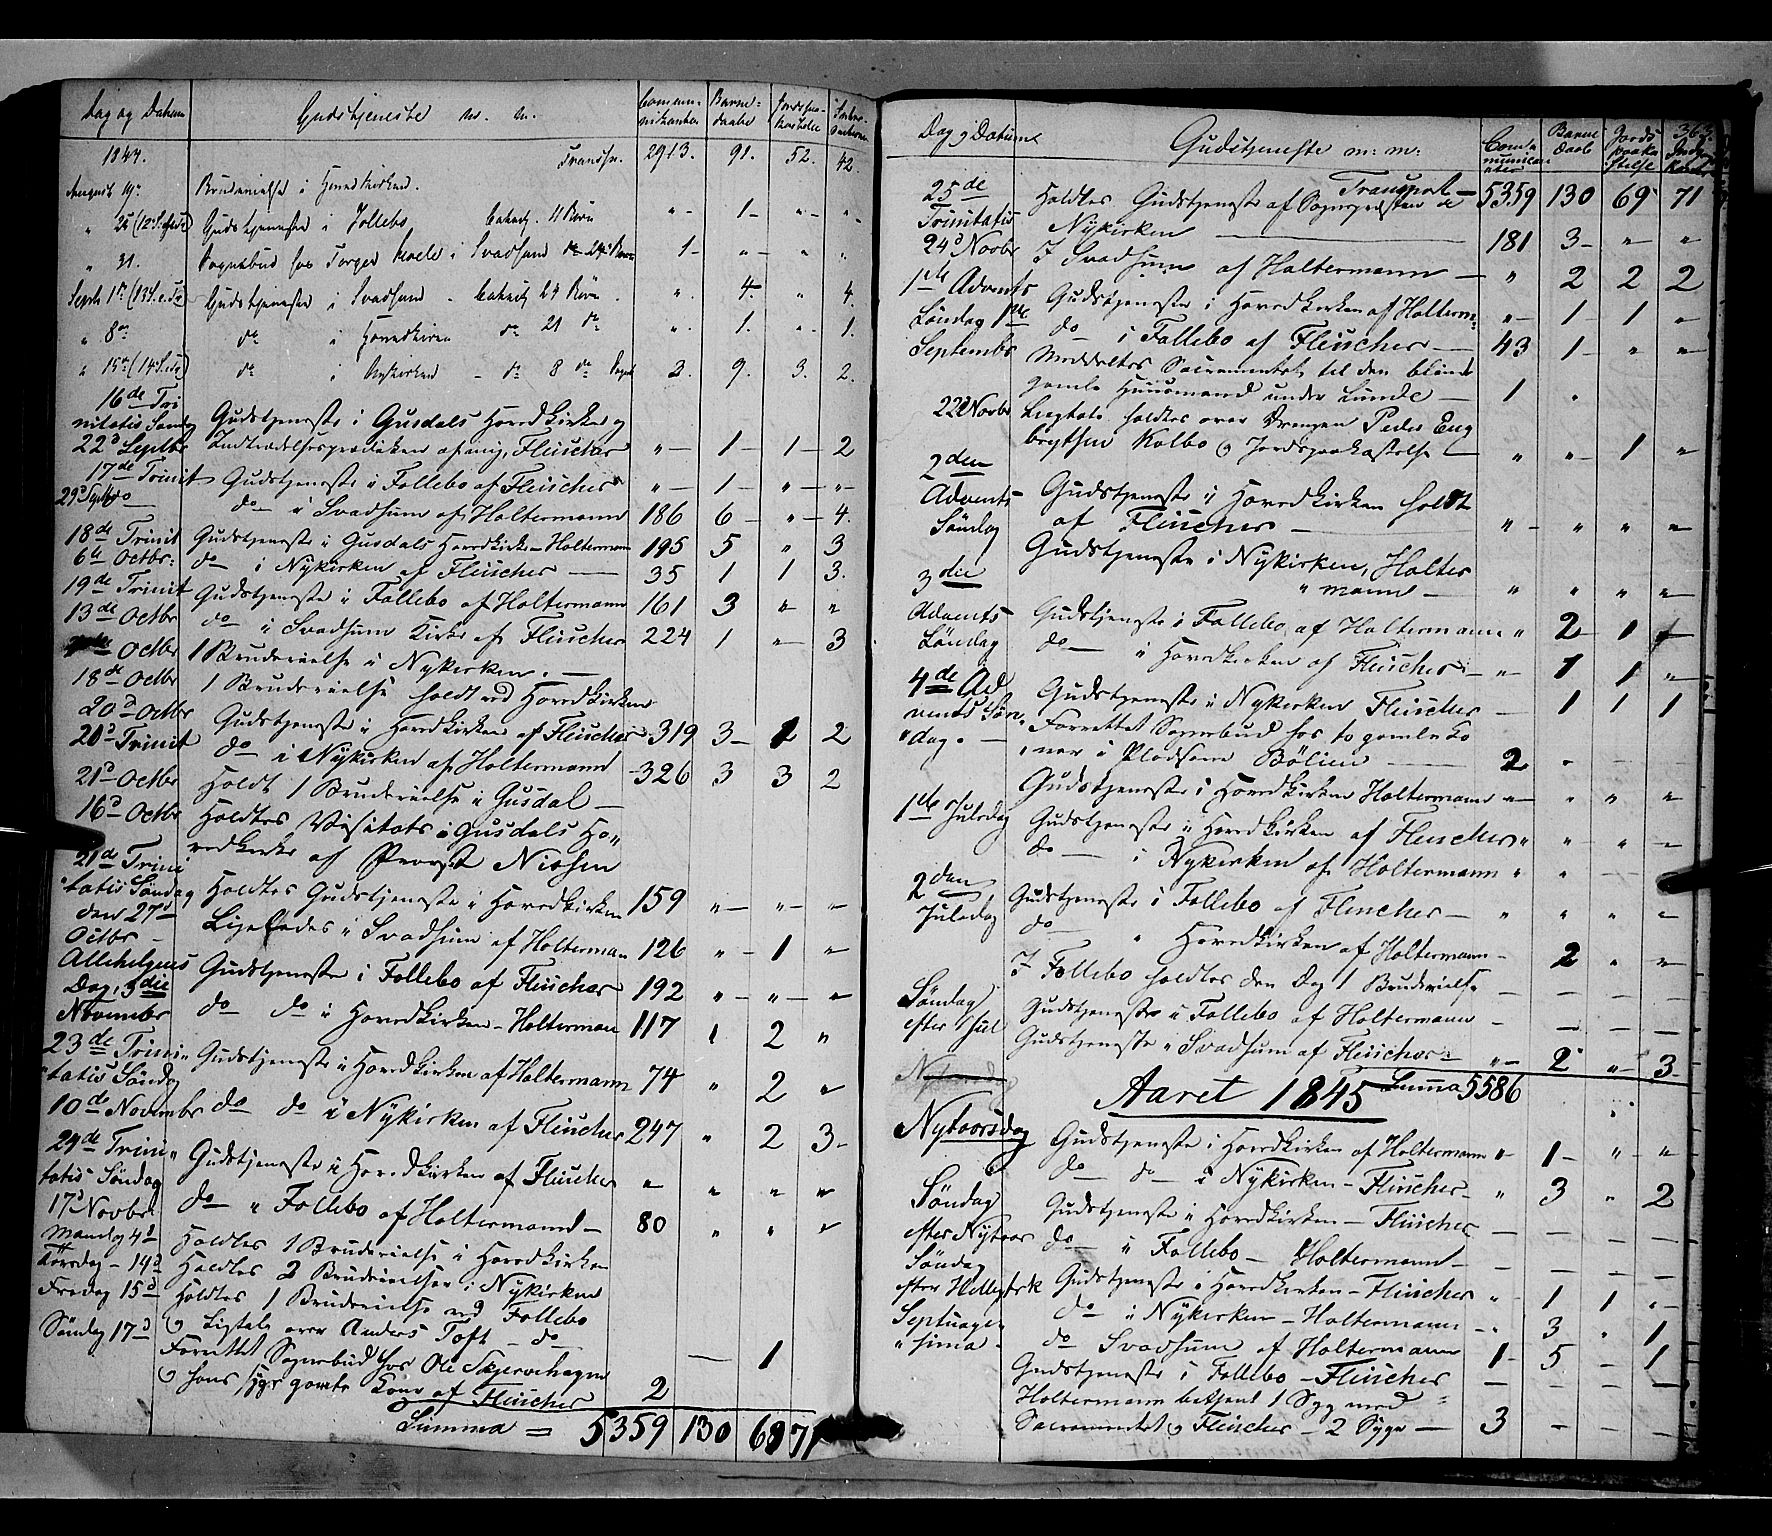 Dag og Datum Gudstjeneste m. m. Commu-nikanter Barne-daabe Jordspaa-kastelse
1844. Transp. 2913. 91. 52. 42.
August 19de Brudevielse i Hovedkirken.
" 25 Gudstjeneste i Follebo catech. 11 Børn " 1 " "
" 31. Sognebud hos i Svadsum 1 " " "
Septb 1ste Gudstjeneste i Svadsum catech. 24 Børn. " 4. " 4.
" 8de do i Hovedkirken do 21 do " 1. " 1.
" 15de do i Nykirken do 8 do 2. 9. 3. 2.
16de Tri
nitatis Søndag Gudstjeneste i Gusdals Hovedkirke og
22d Septbr Indtrædelsesprædiken af mig, Fleischer " 1 1 2
17de Trinit Gudstjeneste i Follebo af Fleischer " 1 " "
29d Septbr do i Svadsum af Holtermann 186 6 " 4.
18de Trinit Gudstjeneste i Gusdals Hovedkirke Holtermann 195 5 " 3
6te Octbr: do i Nykirken af Fleischer 35 1 1 3.
19de Trinit Gudstjeneste i Follebo af Holtermann 161 3 " "
13de Octbr do i Svadsum Kirke af Fleischer 224 1 " 3
Octbr 1 Brudevielse i Nykirken.
18de Octbr 1 Brudevielse holdt ved Hovedkirken
20d Octbr
20d Trinit Gudstjeneste i Hovedkirken af Fleischer 319 3 1 2
do i Nykirken af Holtermann 326 3 3 2
21d Octbr Holdt 1 Brudevielse i Gusdal
16d Octbr Holdtes Visitats i Gusdals Ho"
vedkirke af Provst Nissen
21de Trini
tatis Søndag Holdtes Gudstjeneste i Hovedkirken 159 " " "
den 27d
Octbr Ligeledes i Svadsum af Holterman 126 " 1 "
Allehelgens
Dag, 3die Gudstjeneste i Follebo af Fleischer 192 " " "
November do do i Hovedkirken Holterman 117 1 2 "
23de Trini
tatis Søndag Gudstjeneste i Hovedkirken af Holtermann 74 " 2 "
10de Novembr do do i Nykirken af Fleischer 247 " 2 3
24de Trini
tatis Søndag Gudstjeneste i Hovedkirken af Fleischer " " " "
17d Novbr do " Follebo af Holtermann 80 " " "
Mandag 4d Holdtes 1 Brudevielse i Hovedkirken
Torsdag 14d Holdtes 2 Brudevielser i Nykirken
Fredag 15d Holdtes 1 Brudevielse ved Follebo
Søndag 17d og Ligtale over Anders Toft do 1
Forrettet Sognebud hos Ole Skjervehagen
og hans syge gamle Kone af Fleischer 2
Summa = 5359 130 69 71
363.
Dag og Datum Gudstjeneste m: m: Com-municanter Barne daab Jords paaka stelse
25de Transport 5359 130 69 71
Trinitatis Holdtes Gudstjeneste af Sognepræsten
24d Novbr Nykirken 181 3 " "
I Svadsum af Holtermann " 2 2 2
1ste Advents Gudstjeneste i Hovedkirken af Holterm: " 1 1 "
Søndag 1ste do i Follebo af Fleischer 43 1 " "
Septembr Meddeltes Sacramentet til den blinde
gamle Huusmand under Lunde 1 "
22d Novbr Ligtale holdtes over Drengen Peder Eng
brethsen Kolbo og Jordspaakastelse " " 1 "
2den
Advents Gudstjeneste i Hovedkirken holdt
Søndag af Fleischer " " " "
3die Gudstjeneste i Nykirken, Holter
" mann " " " "
Advents Gudstjeneste i Follebo, af Holtermann " 2 1 "
Søndag do i Hovedkirken af Fleischer " 1 1 "
4de Ad Gudstjeneste i Nykirken Fleischer 1 1 1
vents Søn Forrettet Sognebud hos to gamle Ko
dag. ner i Pladsene Bølien 2 "
Gudstjeneste i Hovedkirken Holtermann " " " "
1ste Juledag Gudstjeneste i Hovedkirken af Fleischer " " " "
do i Nykirken af Holtermann " "
2den Gudstjeneste i Follebo af Fleischer " " " "
Juledag do " Hovedkirken af Holtermann 2 " "
I Follebo holdtes den Dag 1 Brudevielse
Søndag Gudstjeneste i Follebo af Holtermann
efter Jul Gudstjeneste i Svadsum af Fleischer " 2 " 3
Aaret 1845 Summa 5586
Nytaarsdag Gudstjeneste i Hovedkirken af Holtermann " 1 " "
do do i Nykirken Fleischer " 3 " 2
Søndag Gudstjeneste i Hovedkirken Fleischer
efter Nytaar do i Follebo Holtermann
Søndag
efter Helligtrek Gudstjeneste i Hovedkirken Fleischer " 1 1 "
Septuage do i Nykirken Holtermann " 3 " 1
" sima do Svadsum af Holtermann 1 5 1
Gudstjeneste i Follebo Fleischer
Holtermann betjent 1 Syg med
Sacramentet og Fleischer 2 Syge 3